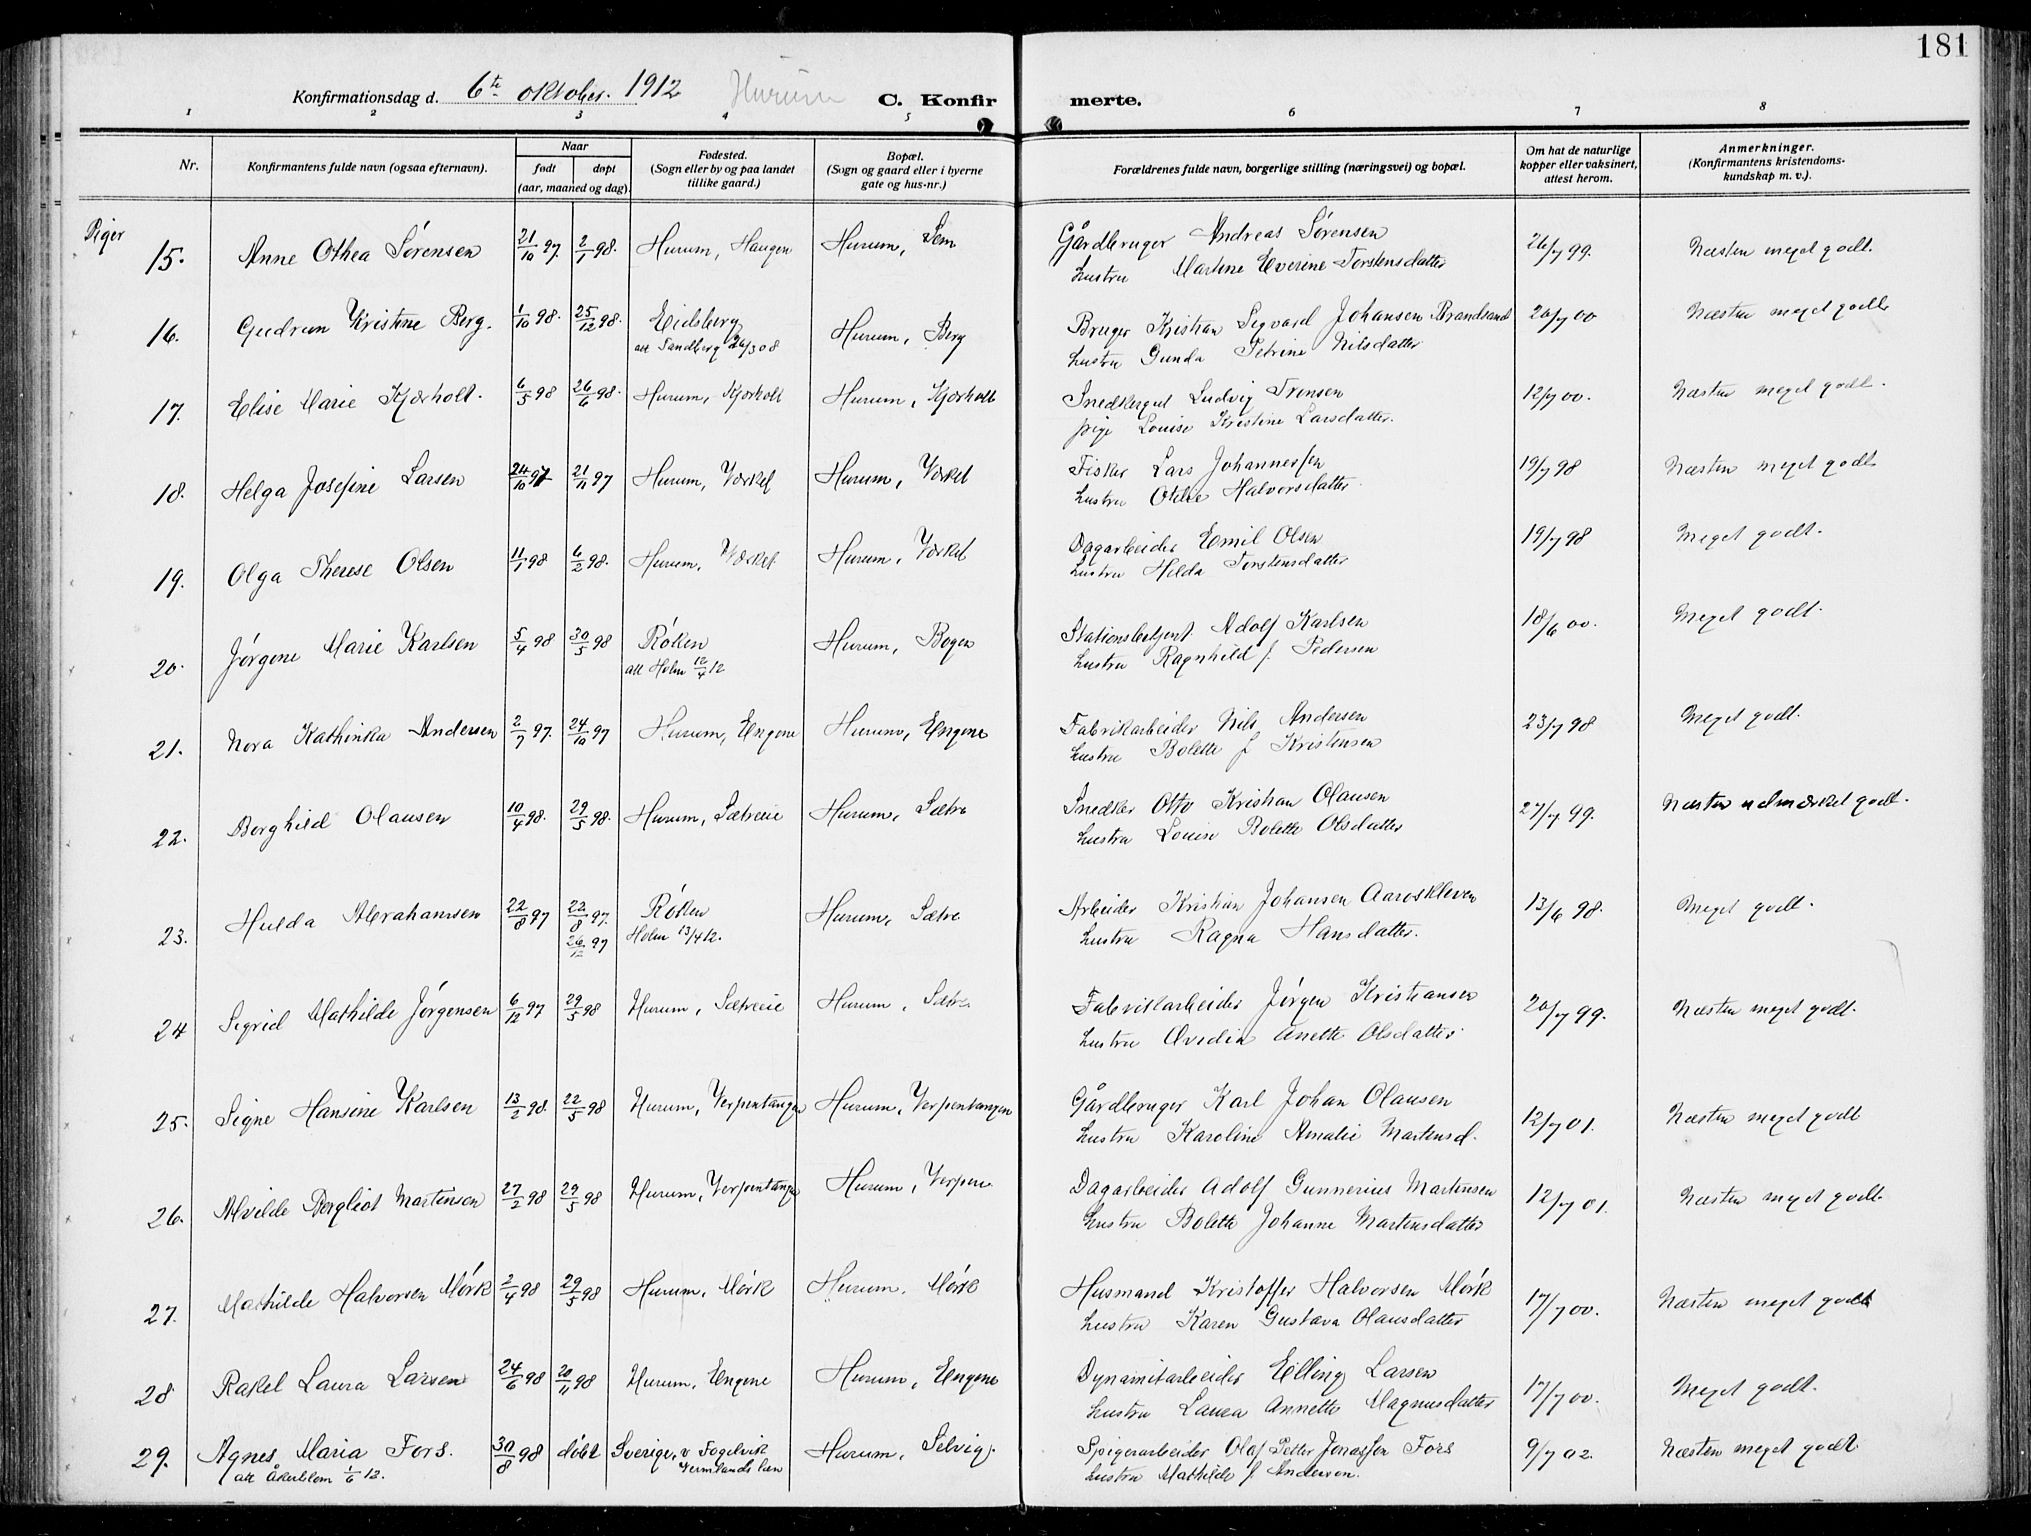 181
Konfirmationsdag d. 6te oktober 1912 Hurum C. Konfirmerte.
1 2 3 4 5 6 7 8
Nr.
Konfirmantens fulde navn (ogsaa efternavn).
Naar
født døpt
(aar, maaned og dag).
Fødested.
(Sogn eller by og paa landet
tillike gaard.)
Bopæl.
(Sogn og gaard eller i byerne
gate og hus-nr.)
Forældrenes fulde navn, borgerlige stilling (næringsvei) og bopæl.
Om hat de naturlige
kopper eller vaksinert,
attest herom.
Anmerkninger.
(Konfirmantens kristendoms-
kundskap m. v.).
Piger
15. Anne Othea Sørensen 21/10 97. 2/1 98. Hurum, Haugen Hurum, Sem Gårdbruger Andreas Sørensen 26/7 99. Næsten meget godt.
hustru Martine Everine Torstensdatter
16. Gudrun Kristine Berg. 1/10 98. 25/12 98. Eidsberg Hurum, Berg Bruger Kristian Sigvard Johansen Brandsand 20/7 00 Næsten meget godt
att Sandberg 26/3 08 hustru Gunda Petrine Nilsdatter
17. Elise Marie Kjærholt. 6/5 98 26/6 98. Hurum, Kjærholt Hurum, Kjærholt Snedkergut Ludvig Tronsen 12/7 00. Næsten meget godt.
pige Louise Kristine Larsdatter.
18. Helga Josefine Larsen 24/10 97 21/11 97 Hurum, Værket Hurum, Værket Fisker Lars Johannessen 19/7 98 Næsten meget godt
hustru Othea Halvorsdatter
19. Olga Therese Olsen 11/1 98 6/2 98. Hurum, Værket Hurum, Værket Dagarbeider Emil Olsen 19/7 98 Meget godt.
hustru Hilda Torstensdatter
20. Jørgene Marie Karlsen 5/4 98 30/5 98 Røken Hurum, Bogen Stationsbetjent Adolf Karlsen 18/6 00. Meget godt.
att Holm 12/4 12 hustru Ragnhild f. Pedersen
21. Nora Kathinka Andersen 2/7 97. 24/10 97 Hurum, Engene Hurum, Engene Fabrikarbeider Nils Andersen 23/7 98 Meget godt.
hustru Bolette f Kristensen
22. Borghild Olausen 10/4 98. 29/5 98. Hurum, Sætreeie Hurum, Sætre Snedker Otto Kristian Olausen 27/7 99. Næsten udmærket godt.
hustru Louise Bolette Olsdatter
23. Hulda Abrahamsen 22/8 97 22/8 97. Røken Hurum, Sætre Arbeider Kristian Johansen Aaroskleven 13/6 98. Meget godt.
26/12 97 Holm 13/4 12. hustru Ragna Hansdatter.
24 Sigrid Mathilde Jørgensen 6/12 97 29/5 98 Hurum, Sætreeie Hurum, Sætre Fabrikarbeider Jørgen Kristiansen 20/7 99. Næsten meget godt.
hustru Ovedia Anette Olsdatter
25. Signe Hansine Karlsen 13/2 98. 22/5 98 Hurum, Verpentangen Hurum, Verpentangen Gårdbruger Karl Johan Olausen 12/7 01. Næsten meget godt
hustru Karoline Amalie Martensd.
26. Alvilde Bergliot Martinsen 27/2 98 29/5 98 Hurum, Verpentangen Hurum, Verpen Dagarbeider Adolf Gunnerius Martinsen 12/7 01. Næsten meget godt.
hustru Bolette Johanne Martensdatter
27. Mathilde Halvorsen Mørk 2/4 98 29/5 98 Hurum, Mørk Hurum, Mørk Husmand Kristoffer Halvorsen Mørk 17/7 00. Næsten meget godt
hustru Karen Gustava Olausdatter
28 Rakel Laura Larsen 24/6 98 20/11 98 Hurum, Engene Hurum, Engene Dynamitarbeider Elling Larsen 17/7 00. Meget godt.
hustru Laura Annette Magnusdatter
29. Agnes Maria Fors. 30/8 98 døbt Sverige, v Fogelvik Hurum, Selvig. Spigerarbeider Olaf Petter Jonassen Fors 9/7 02. Næsten meget godt
att Åkerblom 1/6 12. Vermlands län hustru Mathilde f Anderson.